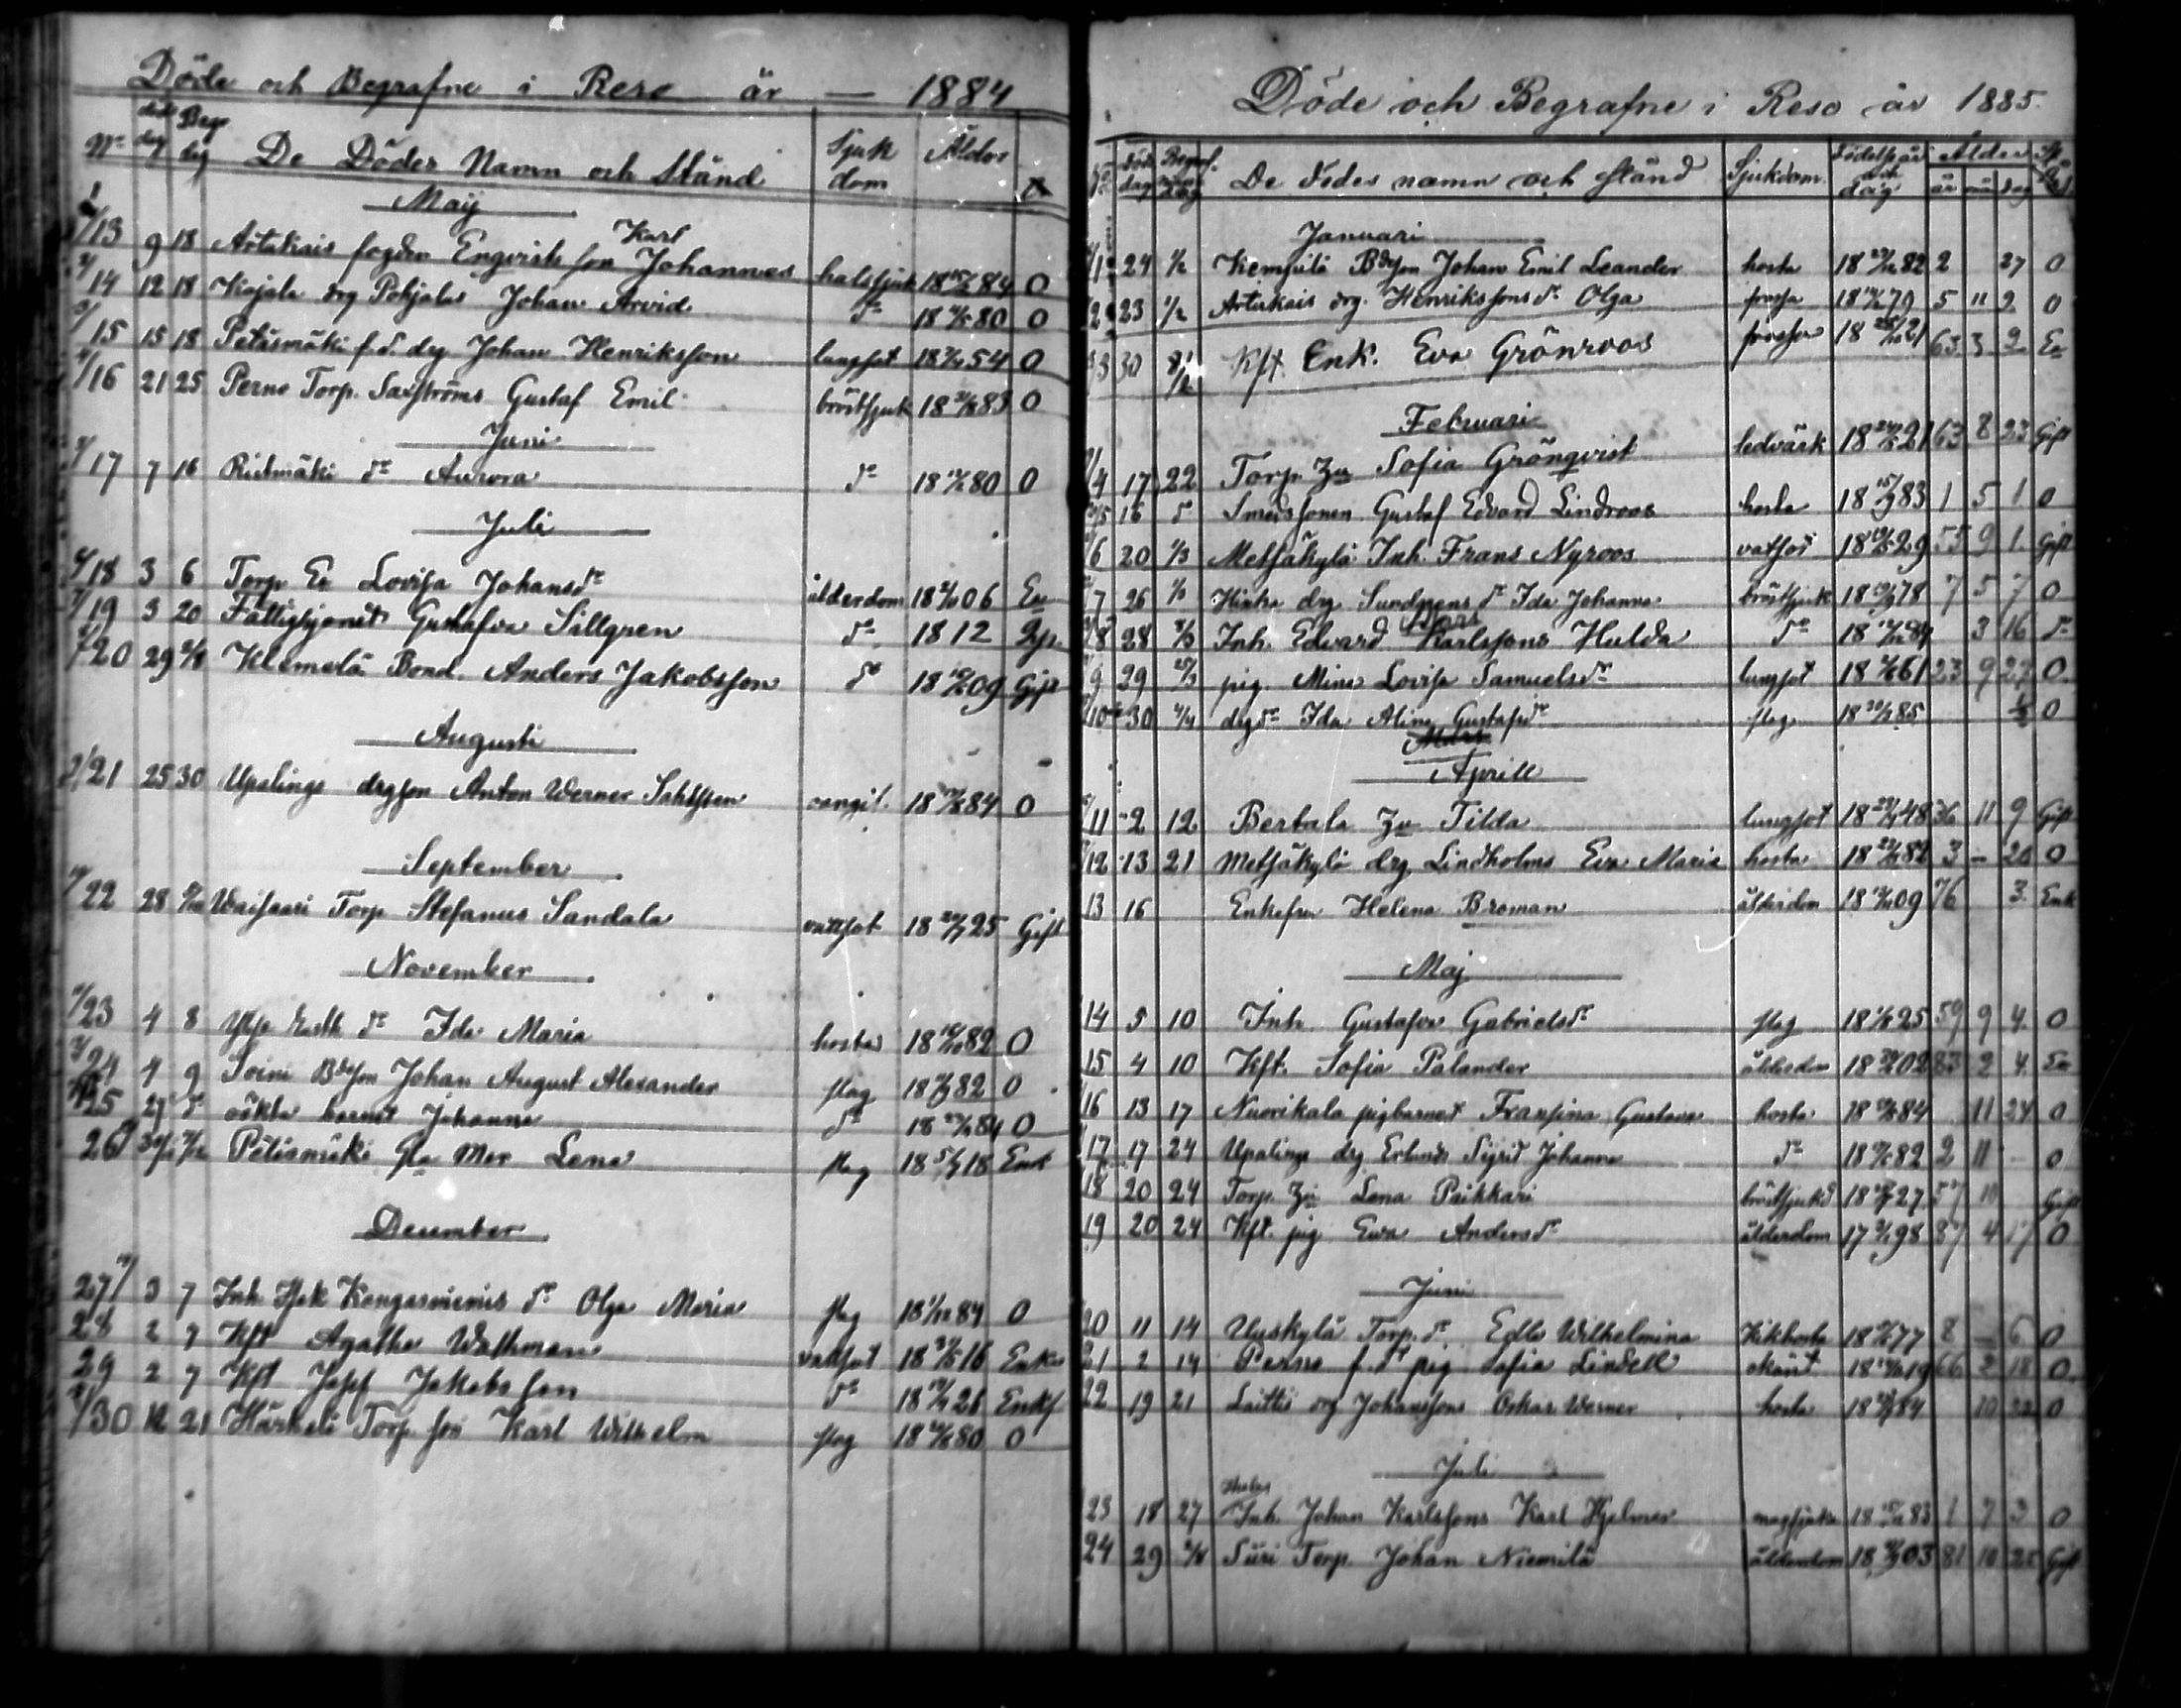 Döde och Begrafne i Reso år — 1884
No död dag Begr dag De Dödes Namn och Stånd Sjukdom Ålder
Maij
13 9 18 Artukais fogden Engvist son Karl Johannes halssjuk 84 0
14 12 18 Kajala drg Pohjalas Johan Arvid do 80 0
15 15 18 Petäsmäki f.d. drg Johan Henriksson lungsot 54 0
16 21 25 Perno Torp. Saxströms Gustaf Emil bröstsjuk 83 0
Juni
17 7 16 Ristmäki dr Aurora do 80 0
Juli
18 3 6 Torp Ea Lovisa Johansdr ålderdom 06 Ea
19 3 20 Fattighjonet Gustafva Sillgren do 1812
20 29 Klemelä Bond. Anders Jakobsson do 09 Gift
Augusti
21 25 30 Upalinge drgson Anton Werner 84 0
September
22 28 Waisaari Torp Stefanus Sandala vattsot 25 Gift
November
23 4 8 dr Ida Maria hosta 82 0
24 4 9 Soini Bdeson Johan August Alexander slag 82 0
25 27 do oäkta barnet Johanna do 84 0
26 Petäsmäki Gla Mor Lena slag 18 Enk
December
27 3 7 Inh. Isak Kangasniemis dr Olga Maria slag 84 0
28 2 7 Kft Agatha Wathman vattsot 16 Enka
29 2 7 Kft Josef Jakobsson do 26 Enkl
30 12 21 Härkälä Torp son Karl Wilhelm slag 80 0
Döde och Begrafne i Reso år 1885.
No Döds dag Begrafnings dag De Dödes namn och stånd Sjukdom Födelseår och dag Ålder år mån dag
Januari
1 24 1/2 Kempilä Bdeson Johan Emil Leander hosta 82 2 27 0
2 23 1/2 Artukais drg. Henrikssons dr Olga frossa 79 5 11 2 0
3 30 8/2 Kft. Enk. Eva Grönroos frossa 21 63 3 2 Ea
Februari
4 17 22 Torp. Zu Sofia Grönqvist ledvärk 21 63 8 23 Gift
5 16 do Smedssonen Gustaf Edvard Lindroos hosta 83 1 5 1 0
6 20 1/3 Metsäkylä Inh. Frans Nyroos vatsot 29 55 9 1 Gift
7 26 1/3 drg Sundgrens dr Ida Johanna bröstsjuk 78 7 5 7 0
Mars
8 28 8/3 Inh. Edvard Karlssons Hulda do 84 3 16 do
9 29 pig. Mina Lovisa Samuelsdr lungsot 61 23 9 27 0
10 30 drgdr Ida Alina Gustafsdr slag 85 0
Mars
Aprill
11 2 12 Bertala Zu Tilda lungsot 48 36 11 9 Gift
12 13 21 Metsäkylä drg Lindholms Eva Maria hosta 82 3 – 20 0
13 16 Enkefru Helena Broman ålderdom 09 76 3 Enk
Maj
14 5 10 Inh. Gustafva Gabrielsdr slag 25 59 9 4 0
15 4 10 Kft. Sofia Palander ålderdom 02 83 2 4 Ea
16 13 17 Nuorikala pigbarnet Fransina Gustava hosta 84 11 24 0
17 17 24 Upalinge drg Erlunds Sigrid Johanna do 82 2 11 – 0
18 20 24 Torp. Zu Lena Paikkari bröstsjukd 27 57 11 Gift
19 20 24 Kft. pig Eva Andersdr ålderdom 98 87 4 17 0
Juni
20 11 14 Uuskylä Torp. dr Edla Wilhelmina Kikhosta 77 8 – 6 0
21 2 14 Perno f.d. pig Sofia Lindell okänt 19 66 2 18 0
22 19 21 Laittis drg Johanssons Oskar Werner hosta 84 10 22 0
Juli
23 18 27 Inh. Johan Karlssons Karl Hjalmar magsjuka 83 1 7 3 0
24 29 2/8 Suri Torp. Johan Niemilä ålderdom 03 81 10 25 Gift